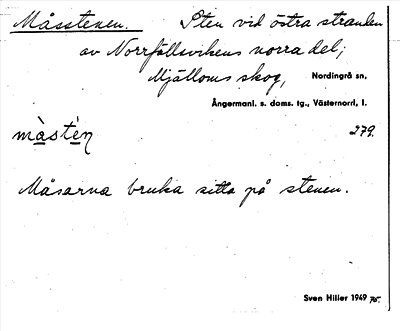 Måsstenen. Sten vid östra stranden
av Norrfällsvikens norra del;
Mjälloms skog, Nordingrå sn,
Ångermanl. s. doms. tg., Västernorrl, l.
måstèn 279.
Måsarna bruka sitta på stenen.
Sven Hiller 1949